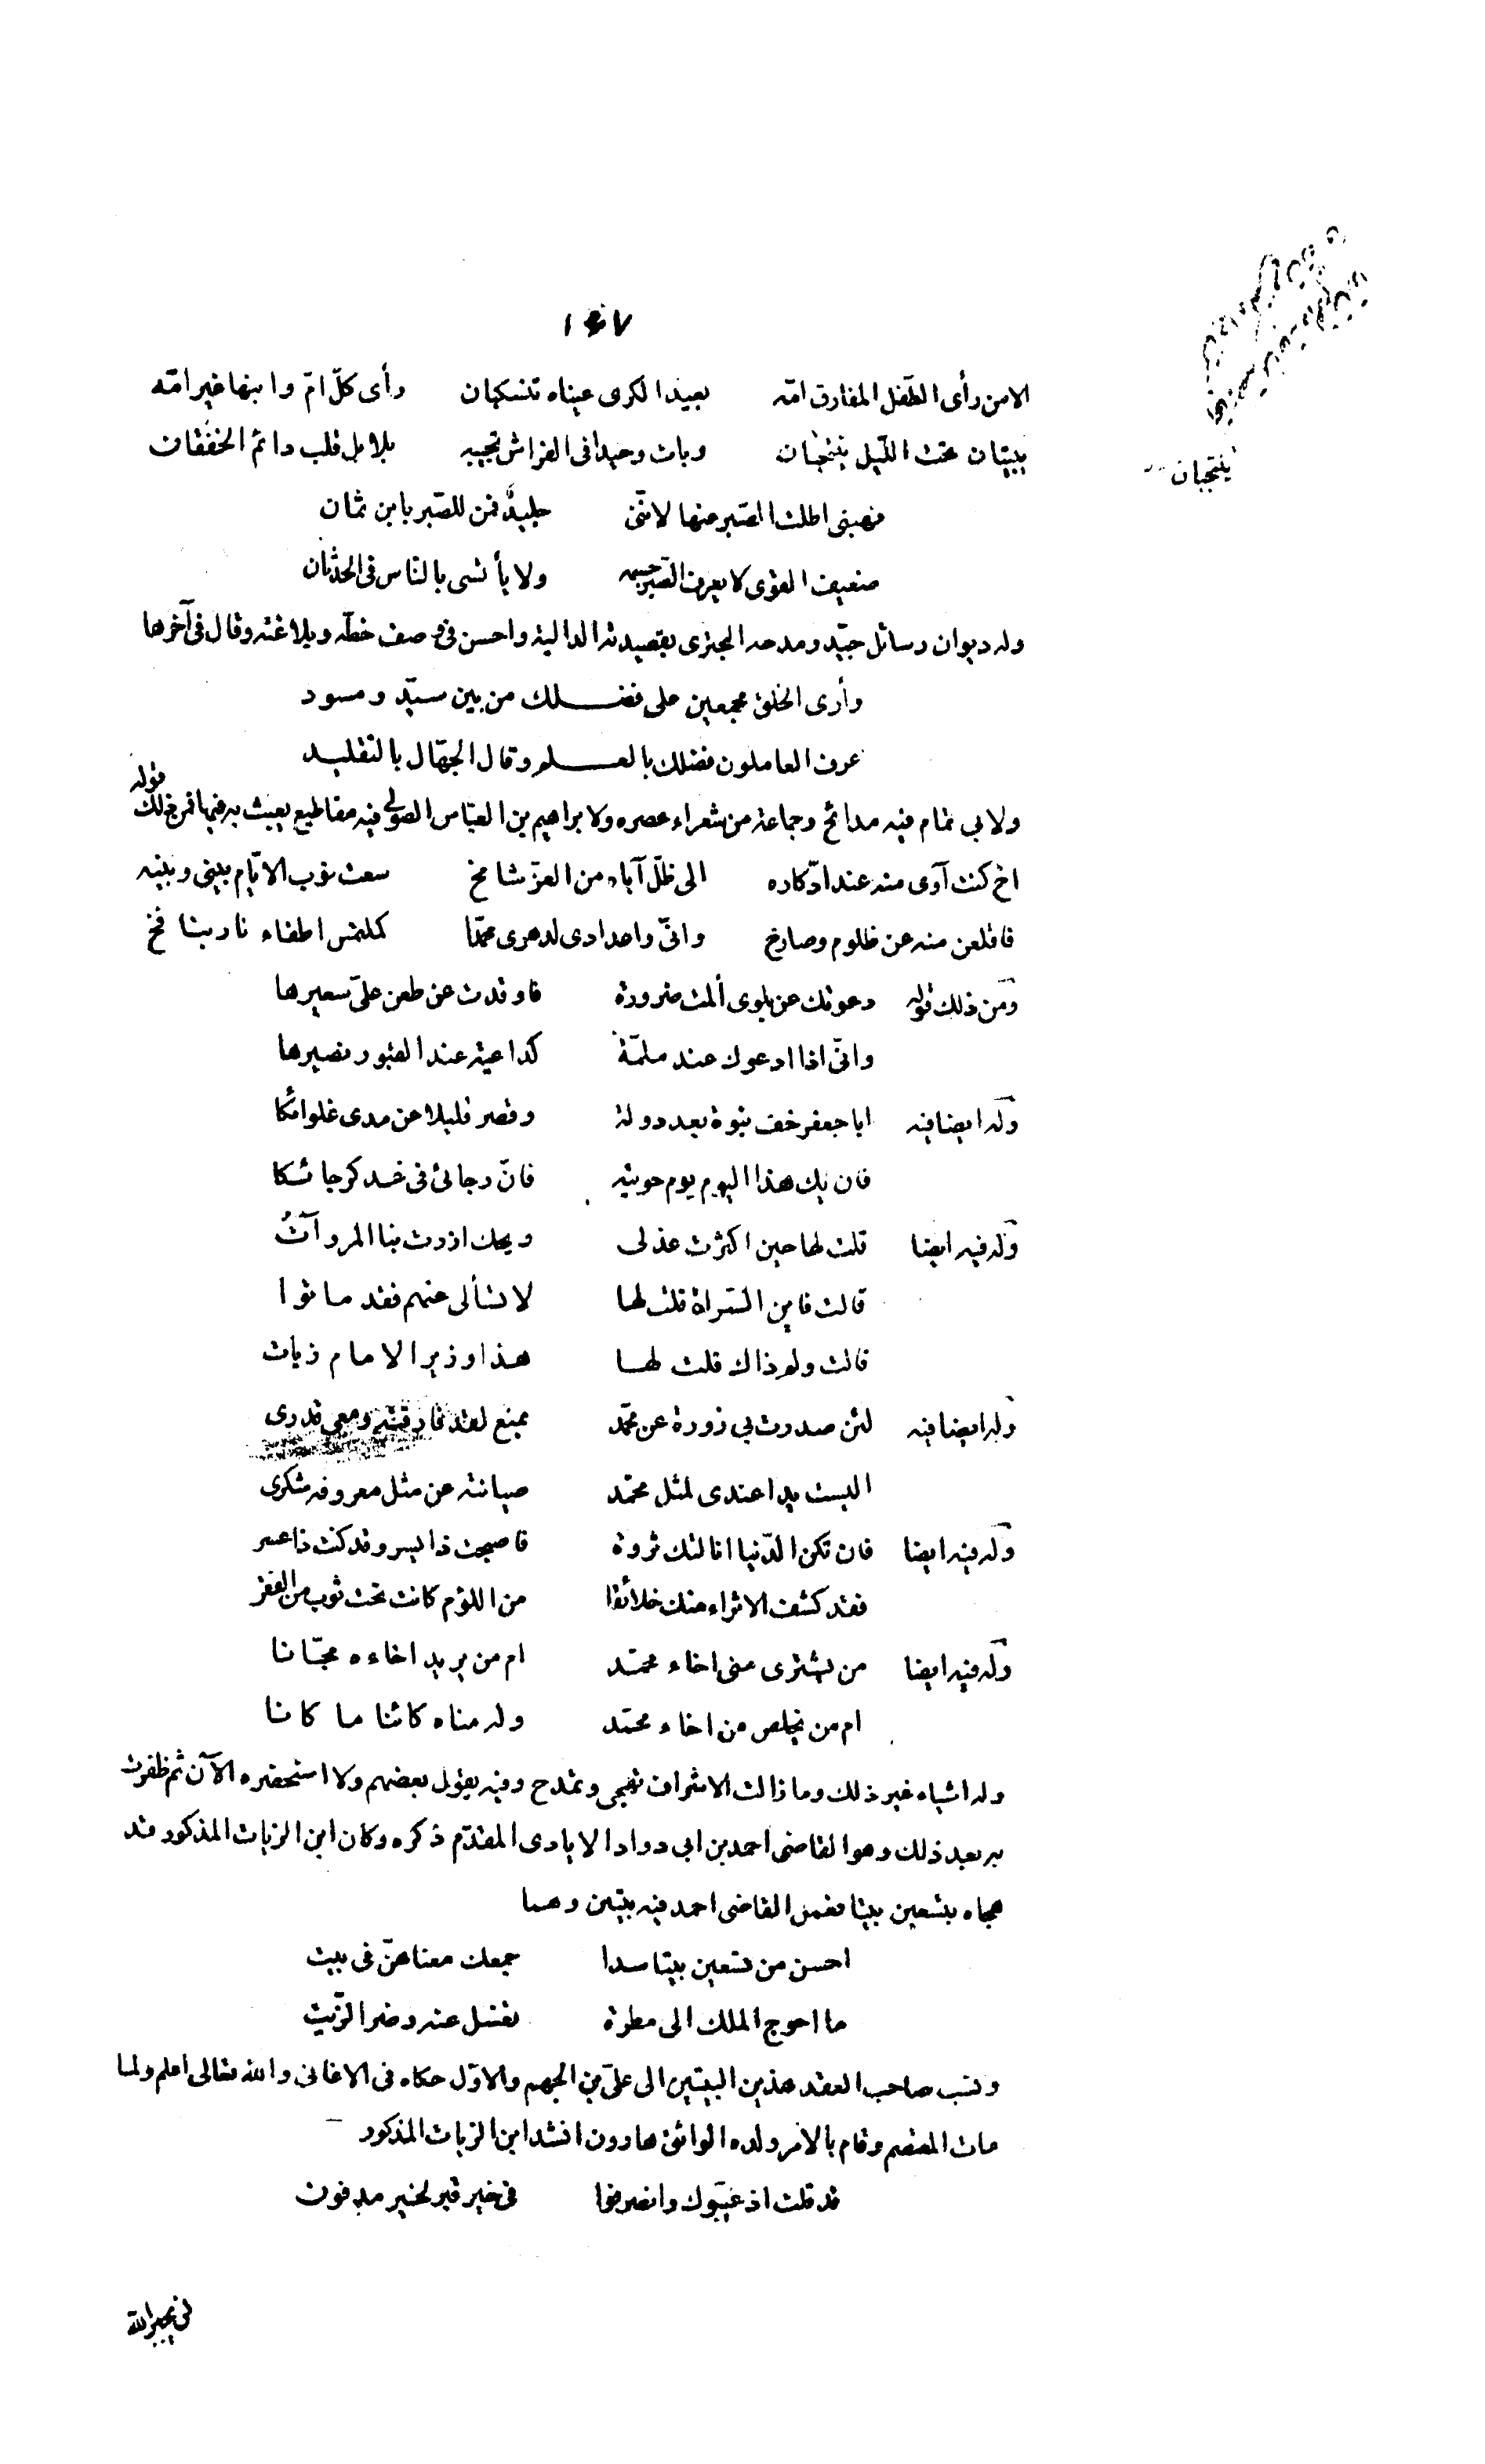 ١٤٧
الا من رأى الطّفل المفارق امّه بعيد الكرى عيناه تنسكبان رأى كلّ امّ وابنها غير امّه
يبيتان تحت اللّيل ينتجيان وبات وحيدا فى الفراش تجيبه بلابل قلب دائم الخفقان
ينتجيان
فهبنى اطلت الصّبر عنها لانّنى جليدٌ فمن للصّبر بابن ثمان
ضعيف القوى لا يعرف الصّبر جسمه ولا يأتسى بالنّاس فى الحدثان
وله ديوان رسائل جيّد ومدحه البحترى بقصيدته الدالية واحسن فى وصف خطّه وبلاغته وقال فى آخرها
وأرى الخلق مجمعين على فضلك من بين سيّد ومسود
عرف العاملون فضلك بالعلم وقال الجهّال بالتقليد
ولابى تمام فيه مدائح وجماعة من شعراء عصره ولابراهيم بن العبّاس الصولى فيه مقاطيع يعبث به فيها فمن ذلك قوله
اخ كنت آوى منه عند ادّكاره الى ظلّ آباء من العزّ شامخ سعت نوب الايّام بينى وبينه
فاقلعن منه عن ظلوم وصارخ وانّى واعدادى لدهرى محمّدا كملتمس اطفاء نار بنافخ
ومن ذلك قوله دعوتك عن بلوى ألمت ضرورة فاوقدت عن طعن علىّ سعيرها
وانّى اذا ادعوك عند ملمّة كداعية عند القبور نصيرها
وله ايضا فيه ابا جعفر خف نبوة بعد دولة وقصر قليلا عن مدى غلوائكا
فان يك هذا اليوم يوم حويته فانّ رجائى فى غد كرجائكا
وله فيه ايضا قلت لها حين اكثرت عذلى ويحك ازرت بنا المروآتُ
قالت فاين السّراة قلت لها لا تسألى عنهم فقد ماتوا
قالت ولم ذاك قلت لها هذا وزير الامام زيات
وله ايضا فيه لئن صدرت بى زورة عن محمّد بمنع لقد فارقته ومعى قدرى
اليست يدا عندى لمثل محمّد صيانته عن مثل معروفه شكرى
وله فيه ايضا فان تكن الدّنيا انالتك ثروة فاصبحت ذا يسر وقد كنت ذا عسر
فقد كشف الاثراء منك خلائقا من اللؤم كانت تحت ثوب من الفقر
وله فيه ايضا من يشترى منى اخاء محمّد ام من يريد اخاءه مجّانا
ام من يخلص من اخاء محمّد وله مناه كائنا ما كانا
وله اشياء غير ذلك وما زالت الاشراف تهجى وتمدح وفيه يقول بعضهم ولا استحضره الآن ثم ظفرت
به بعد ذلك وهو القاضى احمد بن ابى دواد الايادى المقدّم ذكره وكان ابن الزيات المذكور قد
هجاه بتسعين بيتا فعمل القاضى احمد فيه بيتين وهما
احسن من تسعين بيتا سدا جمعك معناهنّ فى بيت
ما احوج الملك الى مطرة تغسل عنه وضر الزّيت
ونسب صاحب العقد هذين البيتين الى علىّ بن الجهم والاوّل حكاه فى الاغانى والله تعالى اعلم ولما
مات المعتصم وقام بالامر ولده الواثق هارون انشد ابن الزيات المذكور
قد قلت اذ غيّبوك وانصرفوا فى خير قبر لخير مدفون
لن يجبر الله